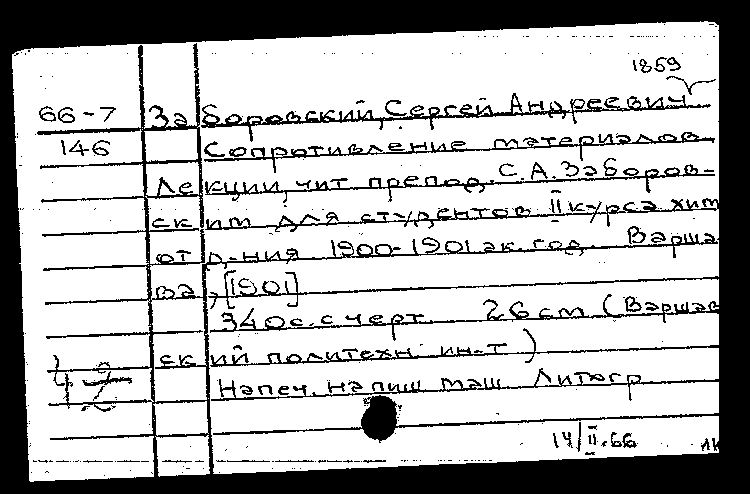 1859
66-7 Заборовский, Сергей Андреевич
146 Сопротивление материалов
Лекции, чит препод. С.А. Заборов-
ским для студентов II курса хим
отд-ния 1900-1901 ак. год. Варша
ва, [1901]
340 с. с черт. 26 см (Варшав
ский политехн ин-т)
Напеч. на пиш маш Литогр
14/II.66